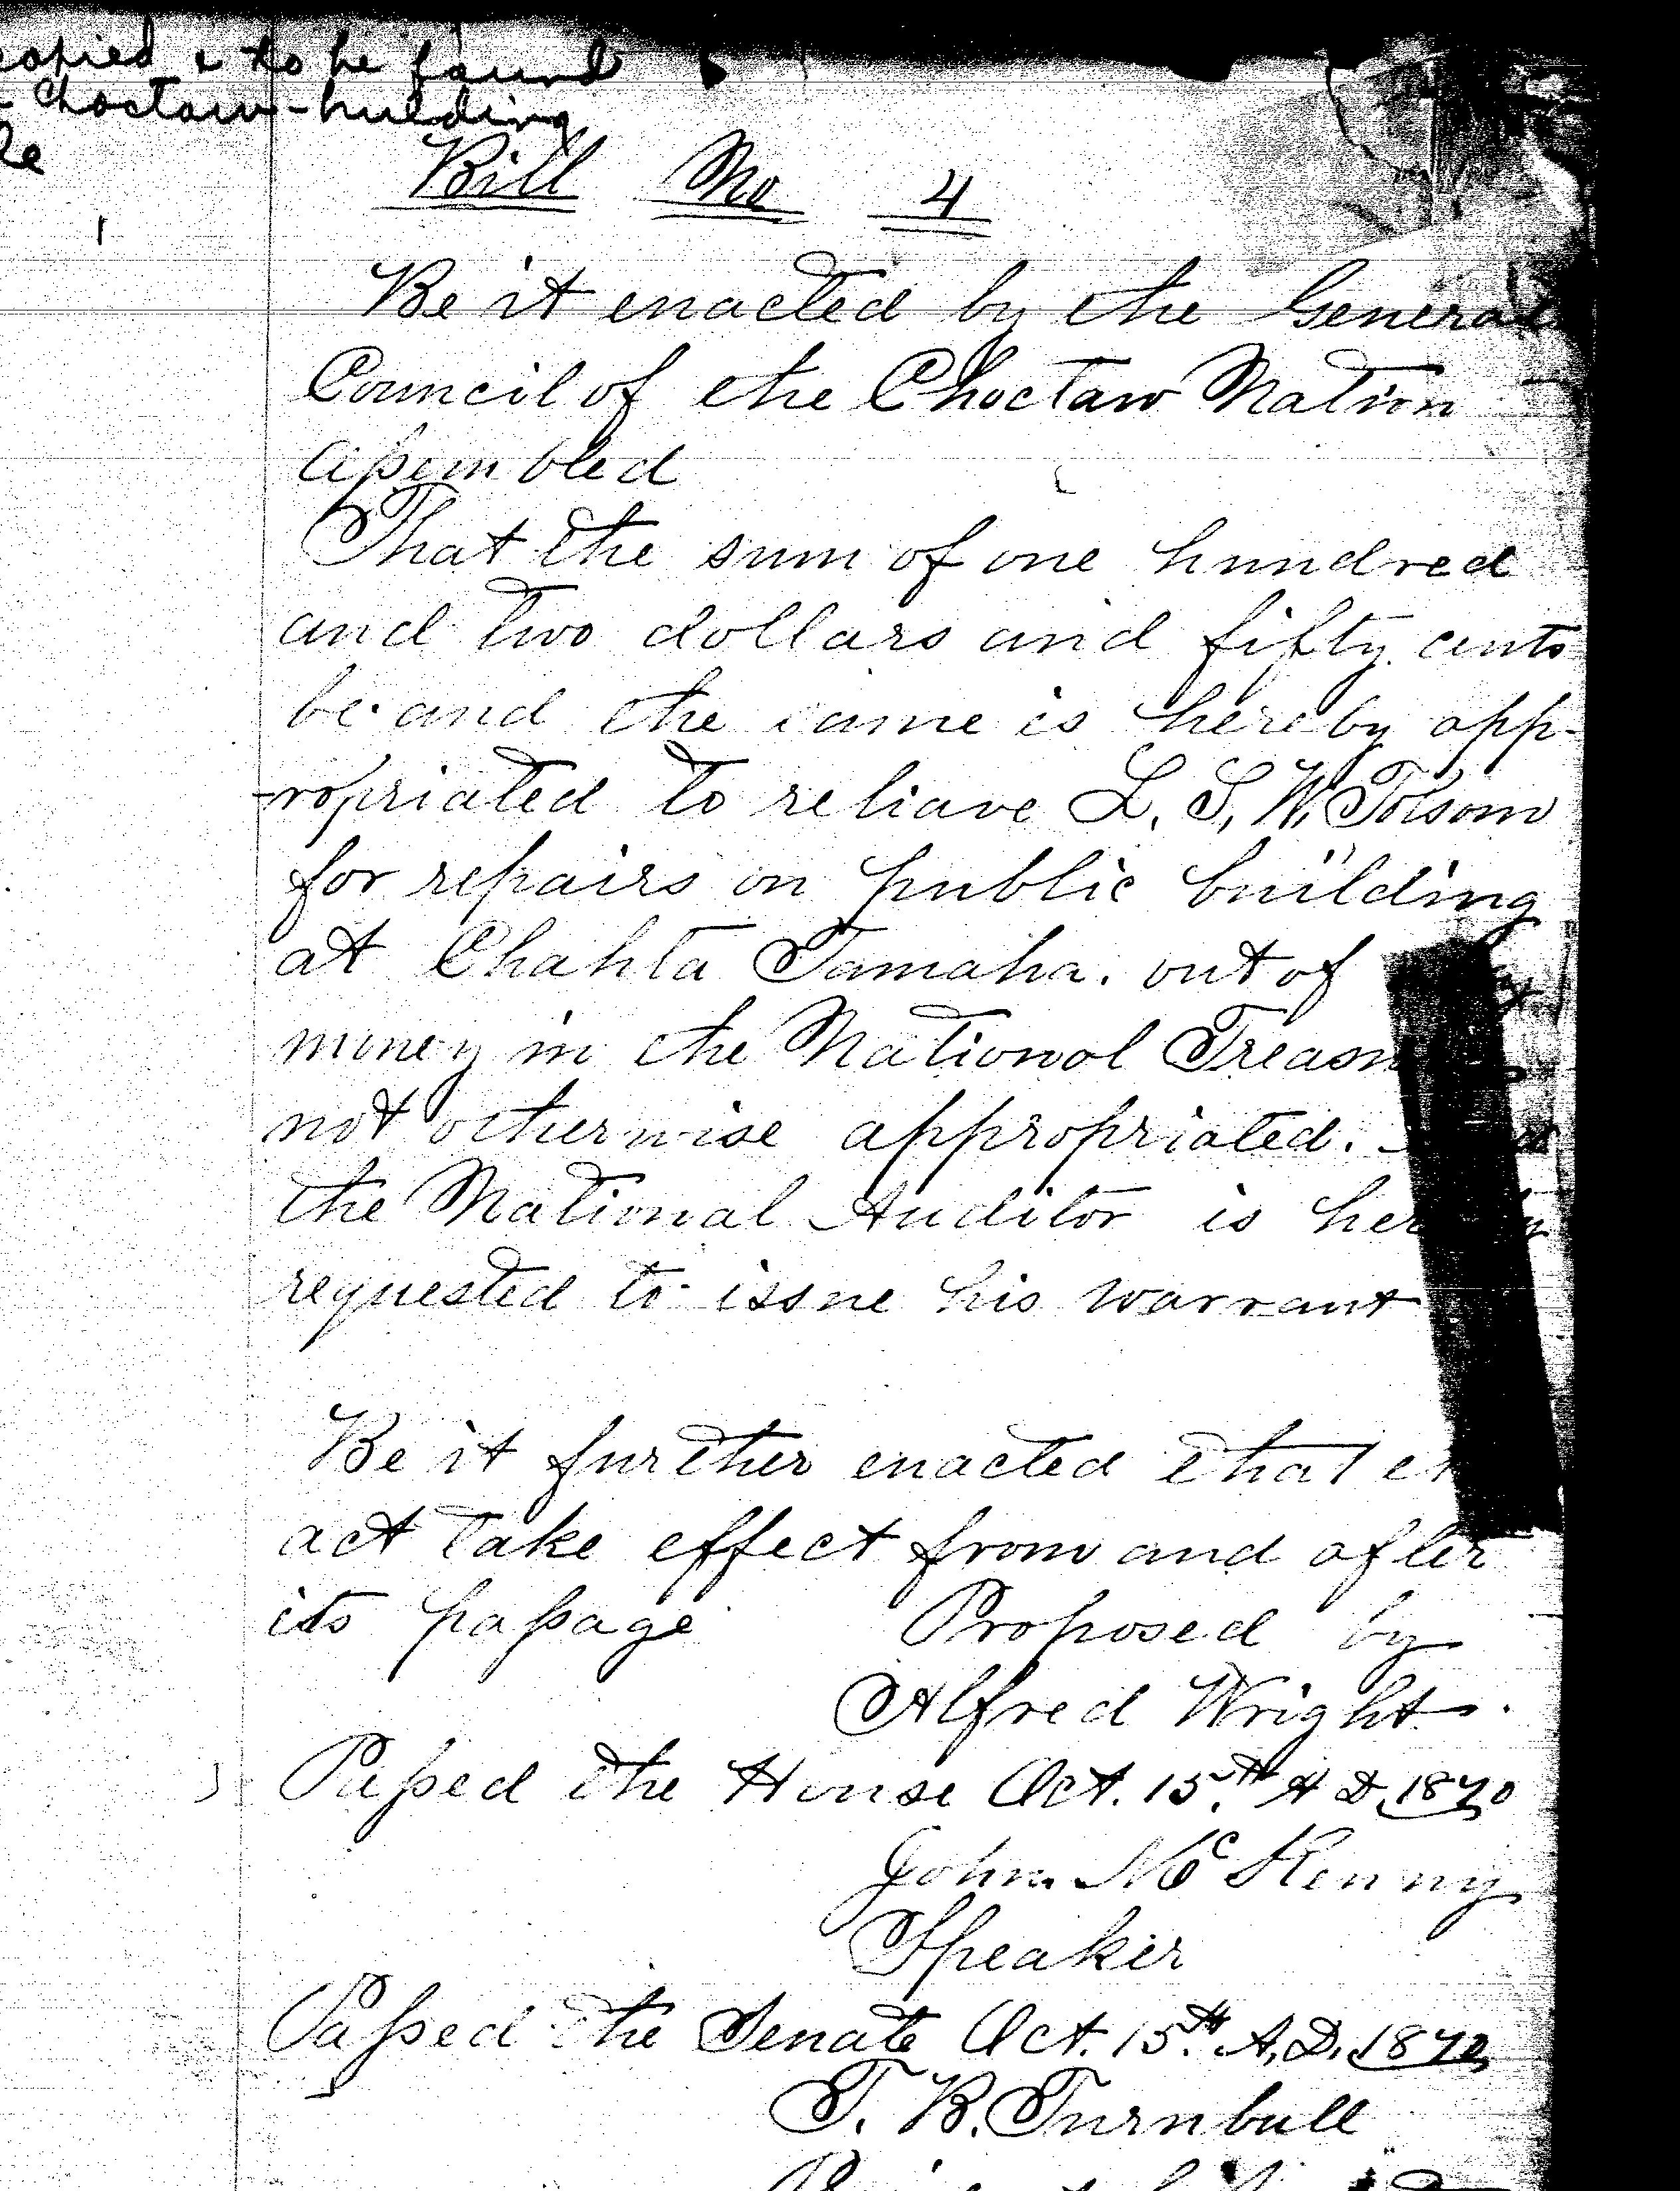 copied & to be found
Choctaw - building
Bill No 4
Be it enacted by the General
Council of the Choctaw Nation
assembled
That the sum of one hundred
and two dollars and fifty cents
be and the same is hereby app-
-ropriated to reliave L. S. W. Folsom
for repairs on public building
at Chahta Tamaha. out of
money in the National
not otherwise appropriated.
the National Auditor is
requested to issue his warrant
Be it further enacted that
act take effect from and after
its passage Proposed by
Alfred Wright.
Passed the House Oct. 15th A D. 1870
John McKenny
Speaker
Passed the Senate Oct. 15th A.D. 1870
T. B. Turnbull